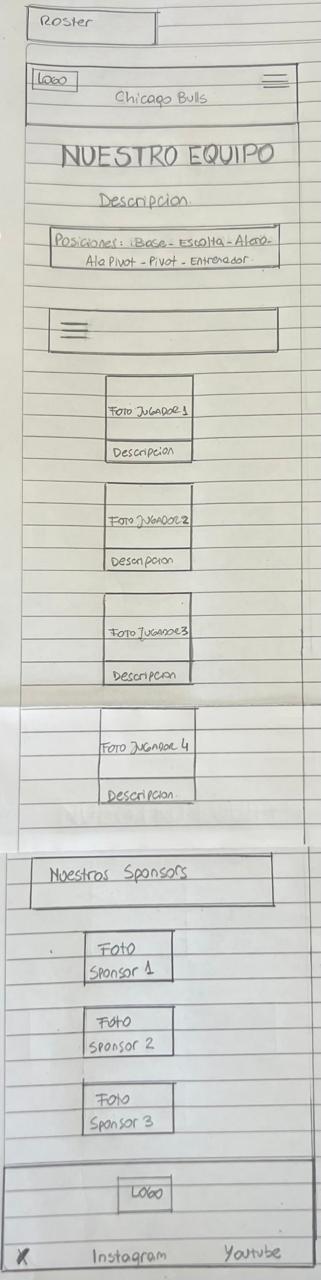 Roster
LOGO
Chicago Bulls
NUESTRO EQUIPO
Descripcion.
Posiciones: Base - Escolta - Alero -
Ala Pivot - Pivot - Entrenador.
FOTO JUGADOR 1
Descripcion
FOTO JUGADOR 2
Descripcion
FOTO JUGADOR 3
Descripcion
FOTO JUGADOR 4
Descripcion.
Nuestros Sponsors
FOTO
Sponsor 1
FOTO
Sponsor 2
FOTO
Sponsor 3
LOGO
X Instagram Youtube